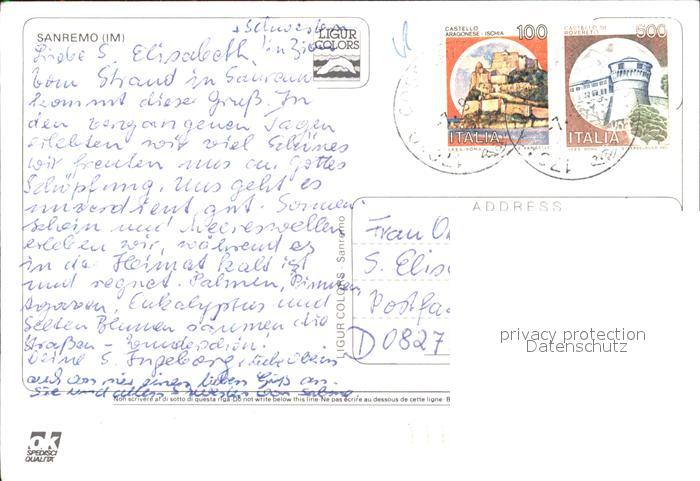 SANREMO (IM)
LIGUR
COLORS
CASTELLO
ARAGONESE - ISCHIA
100
CASTELLO DI
ROVERETO
500
ITALIA
ITALIA
+ Schwestern
Liebe S. Elisabeth,
Vom Strand in Sanremo
kommt dieser Gruß. In
den vergangenen Tagen
erlebten wir viel Schönes
wir freuten uns an Gottes
Schöpfung. Uns geht es
unverdient gut. Sonnen-
schein und Meereswellen
erleben wir, während es
in der Heimat kalt ist
und regnet. Palmen, Pinien,
Agaven, Eukalyptus und
selten Blumen säumen die
Straßen - wunderschön!
Deine S. Ingeborg,
auch von mir einen lieben Gruß an
Sie und allen Schwestern von
LIGUR COLORS - Sanremo
ADDRESS
Frau O
S. Elis
Postfa
D 0827
privacy protection
Datenschutz
Non scrivere al di sotto di questa riga - Do not write below this line - Ne pas écrire au dessous de cette ligne - B
ok
SPEDISCI
QUALITA'